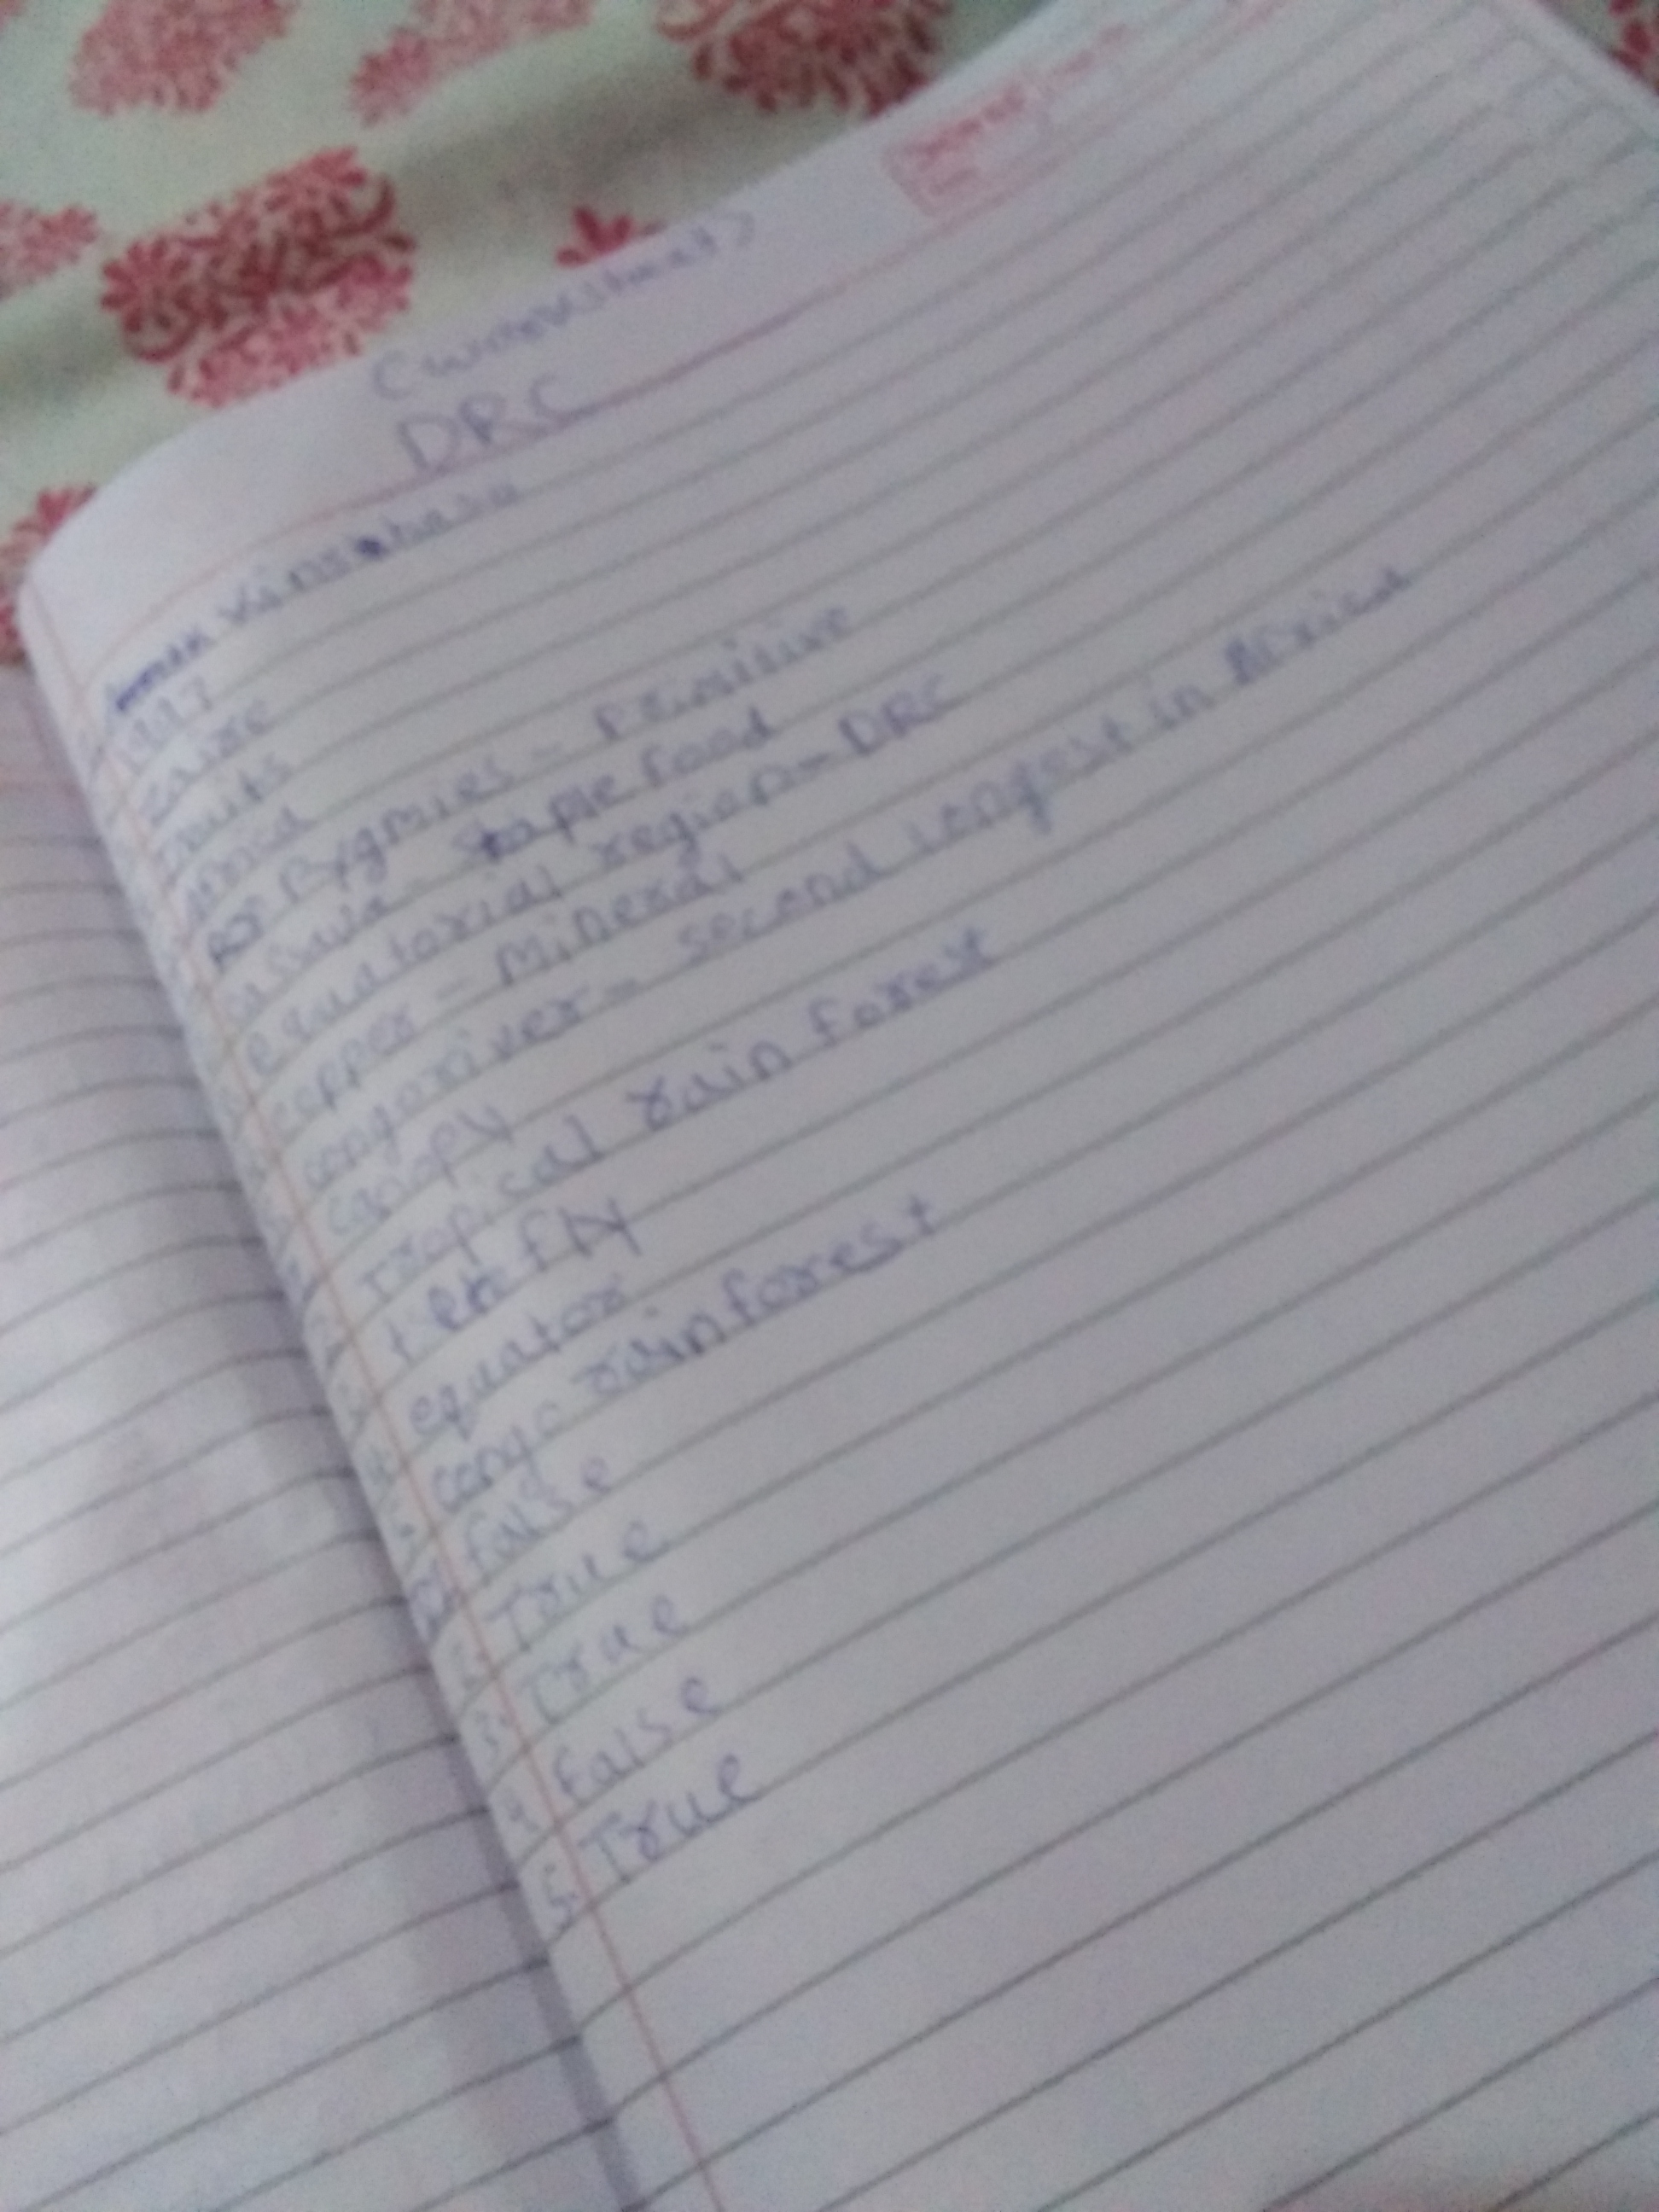 (worksheet)
DRC
Kinshasa
1997
Zaire
fruits
Africa
Pygmies - Primitive
cassava - staple food
Equatorial region - DRC
copper - Mineral
congo river - second longest in African
canopy
Tropical rain forest
fly
equator
congo rainforest
false
True
3. True
4. False
5. True